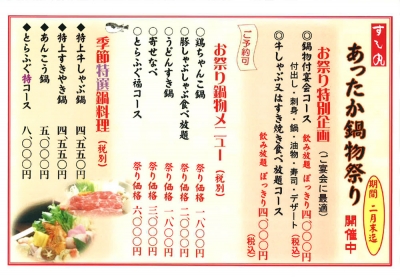 すし丸
あったか鍋物祭り 開催中
期間 二月末迄
お祭り特別企画（ご宴会に最適）
◎鍋物付宴会コース 飲み放題 ぽっきり四〇〇〇円（税込）
付出し・刺身・鍋・油物・寿司・デザート
◎牛しゃぶ又はすき焼き食べ放題コース
飲み放題 ぽっきり四〇〇〇円（税込）
ご予約可
お祭り鍋物メニュー（税別）
○鶏ちゃんこ鍋 祭り価格 一八〇〇円
○豚しゃぶしゃぶ食べ放題 祭り価格 二〇〇〇円
○うどんすき鍋 祭り価格
○寄せなべ 祭り価格 三〇〇〇円
○とらふぐ福コース 祭り価格 六〇〇〇円
季節特選鍋料理（税別）
◆特上牛しゃぶ鍋 四、五五〇円
◆特上すきやき鍋 四、五五〇円
◆あんこう鍋 五〇〇〇円
◆とらふぐ特コース 八、〇〇〇円